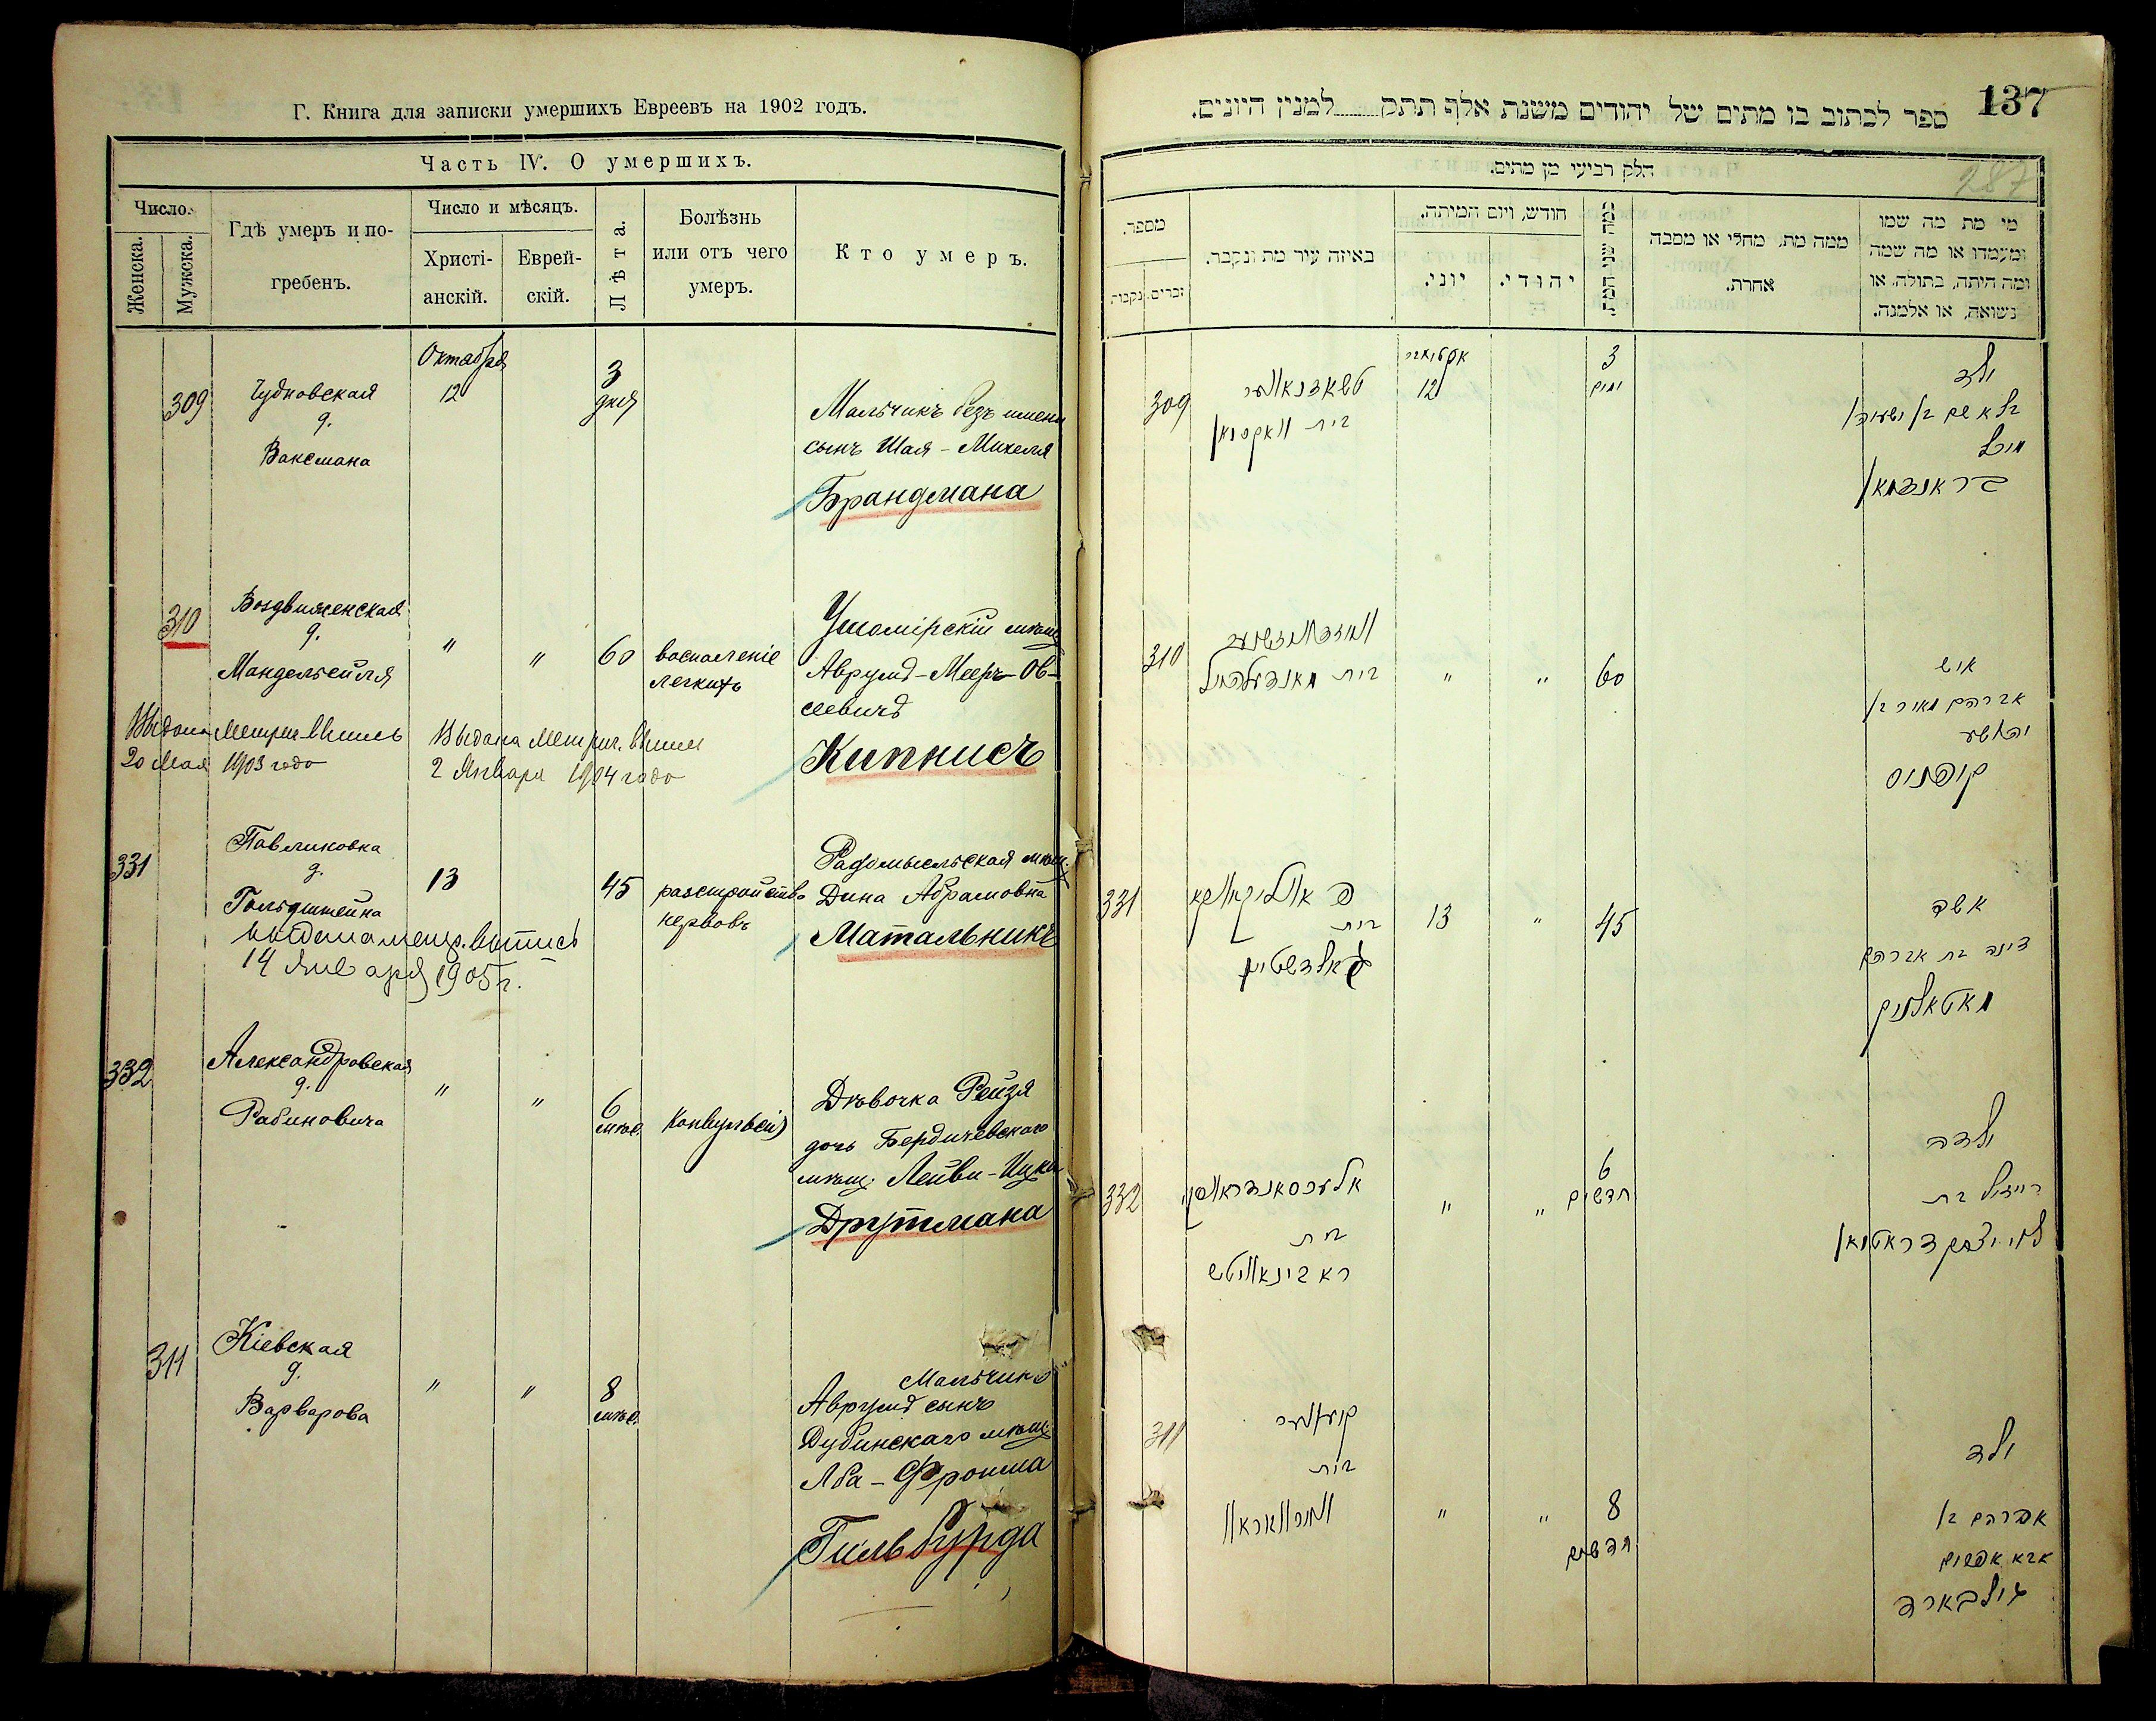 Г. Книга для записки умершихъ Евреевъ на 1902 годъ.
Часть IV. О умершихъ.
Число.
Женска.
Мужска.
Гдѣ умеръ и по-
гребенъ.
Число и мѣсяцъ.
Христі-
анскій.
Еврей-
скій.
Лѣта.
Болѣзнь
или отъ чего
умеръ.
Кто умеръ.
309
Чудновская
д.
Ваксмана
Октября
12
3
дня
Мальчикъ безъ имени
сынъ Шая-Михеля
Брандмана
310
Воздвиженская
д.
Мандельейля
"
"
60
воспаленіе
легкихъ
Ушомірскій мѣщ.
Аврумъ-Мееръ Ов-
сеевичъ
Кипнисъ
Выдана Метрич. Выпись
20 Мая 1903 года
Выдана Метрич. Выпись
2 Января 1904 года
331
Павликовка
д.
Гольдштейна
13
45
разстройство
нервовъ
Радомысльская мѣщ.
Дина Абрамовна
Матальникъ
выдана метр. выпись
14 Января 1905 г.
332
Александровская
д.
Рабиновича
"
"
6
мѣс.
Конвульсія
Дѣвочка Рейзя
дочь Бердичевскаго
мѣщ. Лейви-Ицка
Друтмана
311
Кіевская
д.
Варварова
"
"
8
мѣс.
Мальчикъ
Аврумъ сынъ
Дубинскаго мѣщ.
Аба-Фроима
Гильбурда
137
ספר לכתוב בו מתים של יהודים משנת אלף תתק למנין היונים.
287
חלק רביעי מן מתים.
מספר.
זכרים.
נקבות
באיזה עיר מת ונקבר.
חודש, ויום המיתה.
יוני.
יהודי.
כמה שני המת
ממה מת, מחלי או מסבה
אחרת.
מי מת מה שמו
ומעמדו או מה שמה
ומה היתה, בתולה, או
נשואה, או אלמנה.
309
בית וואקסמאן
אקטואבר
12
3
ימים
ילד
בלא שם בן ישעיה
מיכל
בראנדמאן
310
בית מאנדעלהייל
"
"
60
איש
אברהם מאיר בן
יהושע
קיפניס
331
פאווליקאווקא
בית
גאלדשטיין
13
"
45
אשה
דינה בת אברהם
מאטאלניק
332
אלעכסאנדראווסק
בית
ראבינאוויטש
"
"
6
חדשים
ילדה
רייזיל בת
לוי יצחק דראטמאן
311
בית
ווארוואראוו
"
"
8
חדשים
ילד
אברהם בן
אבא אפרים
גילבארד